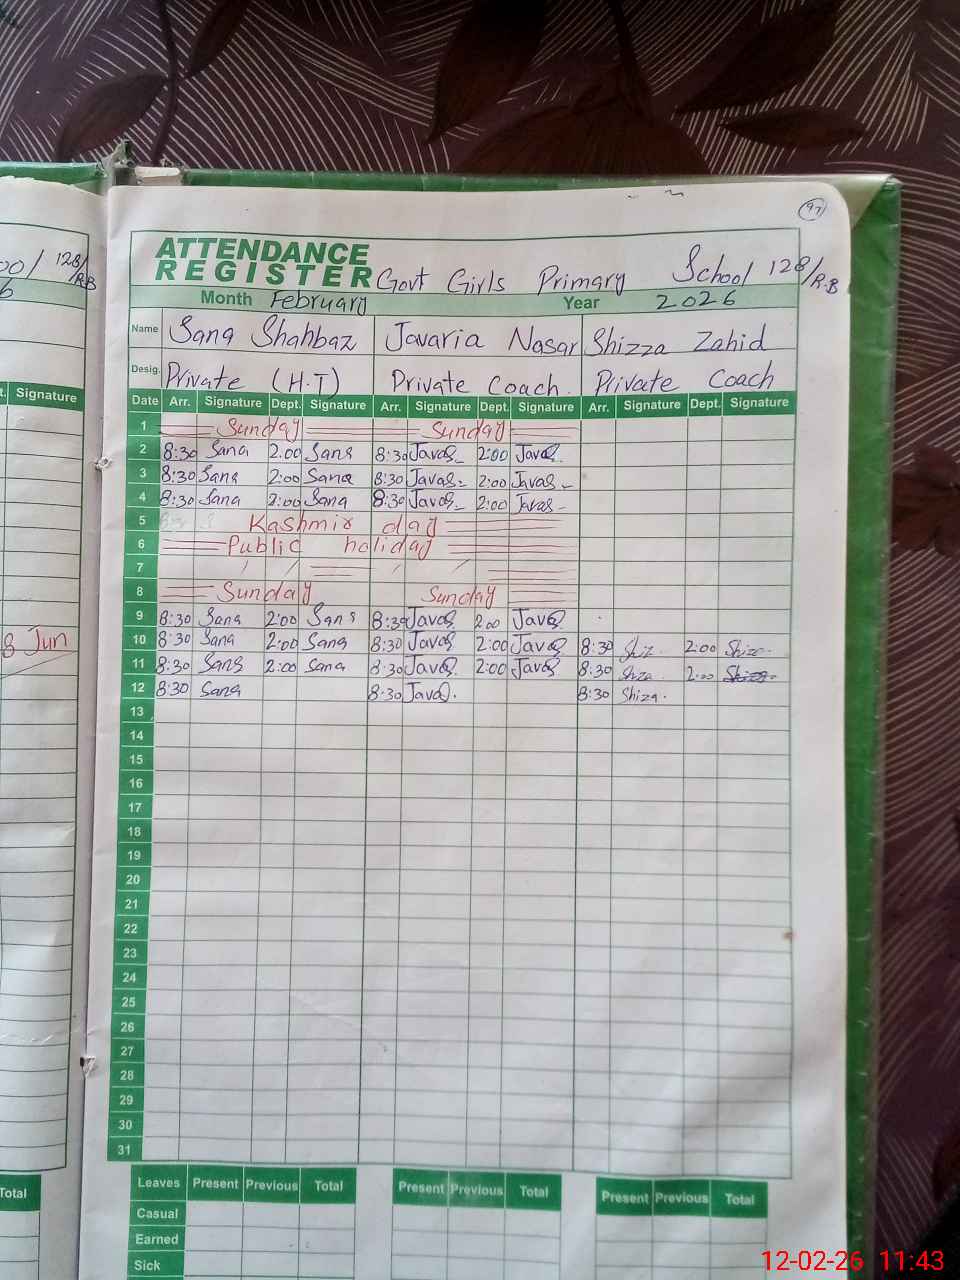 97
ATTENDANCE
REGISTER Govt Girls Primary School 128/R.B
Month February Year 2026
Name Sana Shahbaz Javaria Nasar Shizza Zahid
Desig. Private (H.T) Private Coach. Private Coach
Date Arr. Signature Dept. Signature Arr. Signature Dept. Signature Arr. Signature Dept. Signature
1 Sunday Sunday
2 8:30 Sana 2:00 Sana 8:30 2:00
3 8:30 Sana 2:00 Sana 8:30 2:00
4 8:30 Sana 2:00 Sana 8:30 2:00
5 Kashmir day
6 Public holiday
7
8 Sunday Sunday
9 8:30 Sana 2:00 Sana 8:30 2:00
10 8:30 Sana 2:00 Sana 8:30 2:00 8:30 2:00
11 8:30 Sana 2:00 Sana 8:30 2:00 8:30 2:00
12 8:30 Sana 8:30 8:30 Shiza.
13
14
15
16
17
18
19
20
21
22
23
24
25
26
27
28
29
30
31
Leaves Present Previous Total Present Previous Total Present Previous Total
Casual
Earned
Sick
128/R.B
Signature
8 Jun
Total
12-02-26 11:43